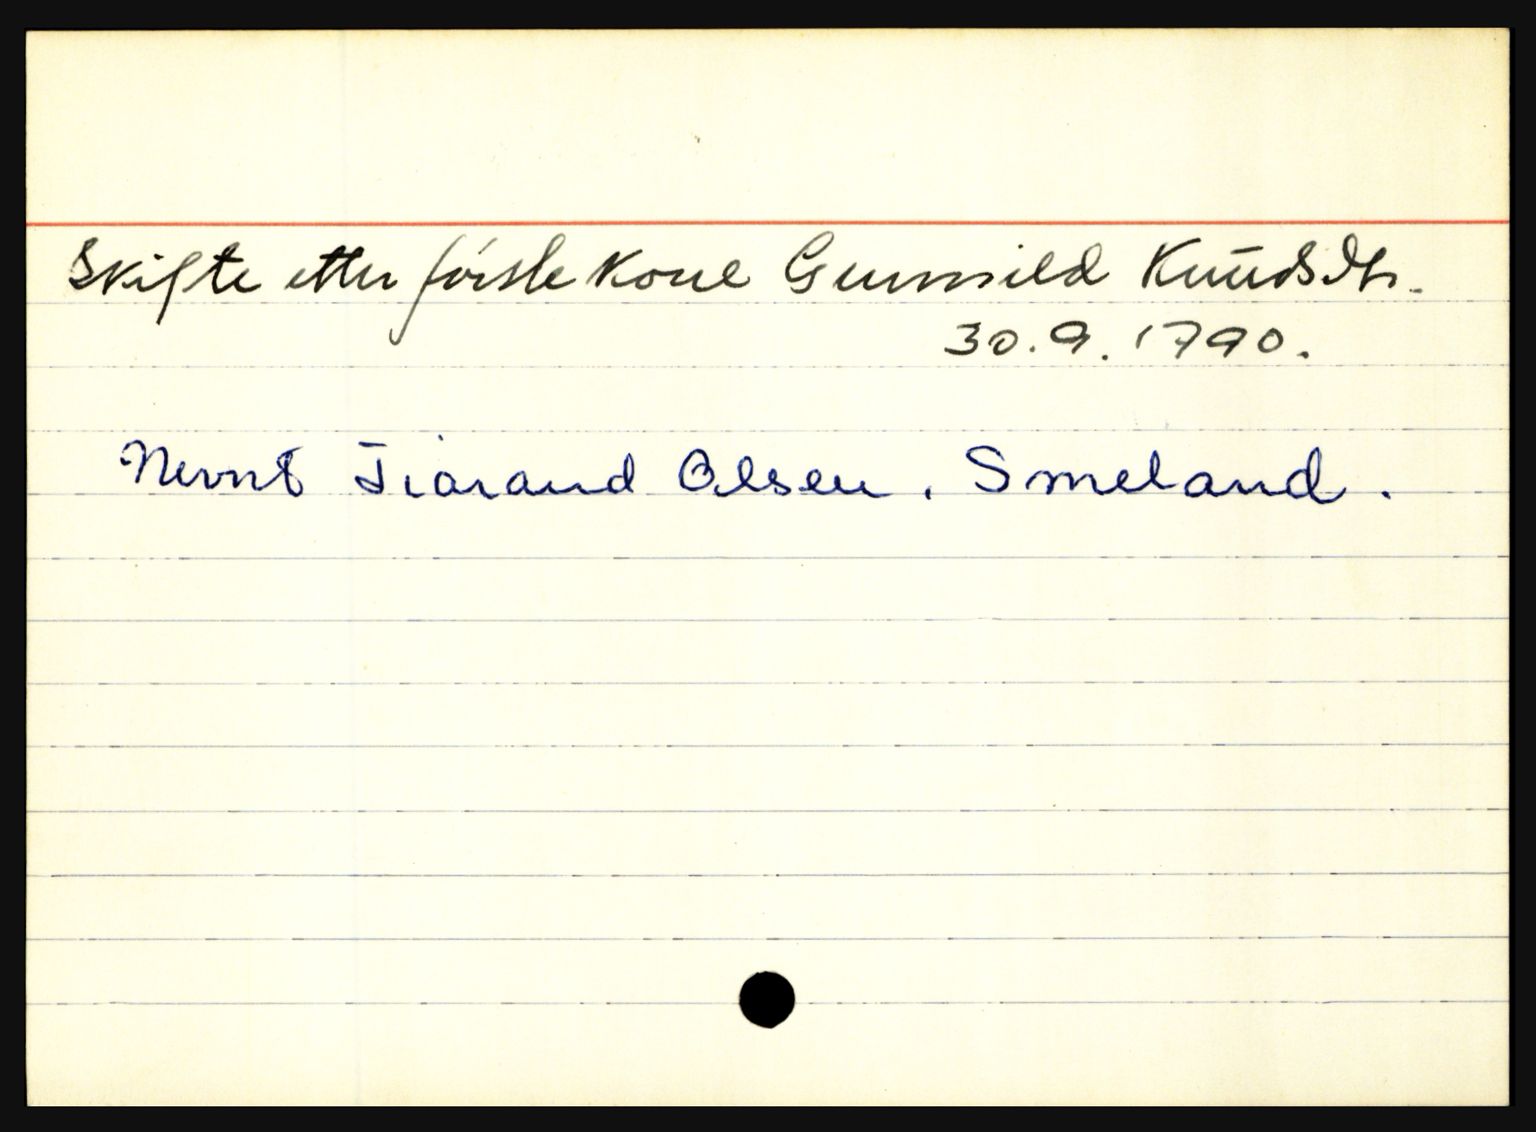 Skifte etter første kone Gunnild Knudsdtr.
30.9.1790.
Nevnt Tiarand Olsen, Smeland.